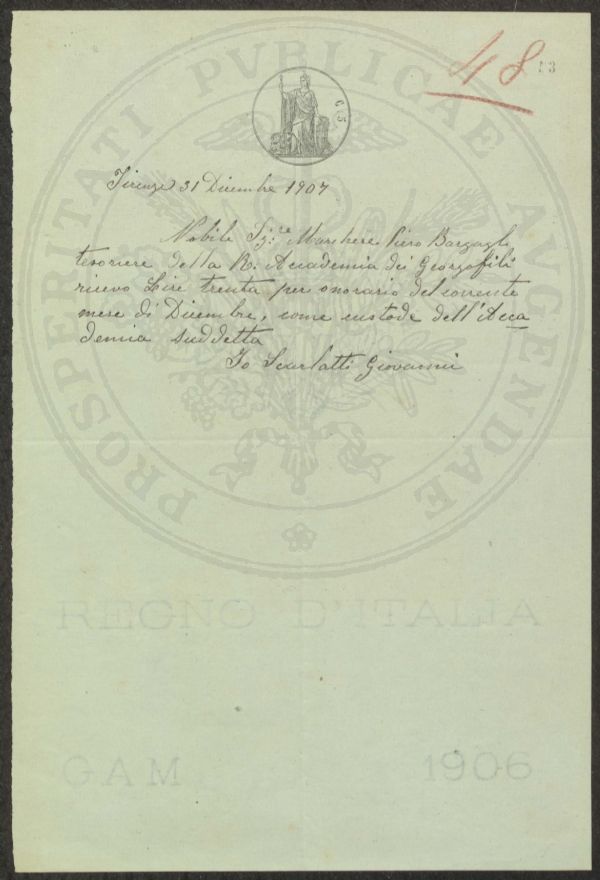 48
53
C 5
Firenze 31 Dicembre 1907
Nobile Sig:re Marchese Piero Bargagli
tesoriere della R. Accademia dei Georgofili
ricevo Lire trenta per onorario del corrente
mese di Dicembre, come custode dell'Acca
demia suddetta
Io Scarlatti Giovanni
PROSPERITATI PVBLICAE AVGENDAE
REGNO D'ITALIA
GAM 1906